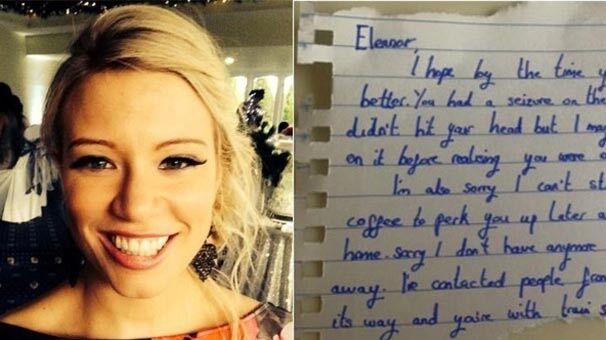 Eleanor,
I hope by the time
better. You had a seizure on the
didn't hit your head but I may
on it before realising you were
I'm also sorry I can't st
coffee to perk you up later a
home. Sorry I don't have anymore
away. I've contacted people from
its way and you're with train s